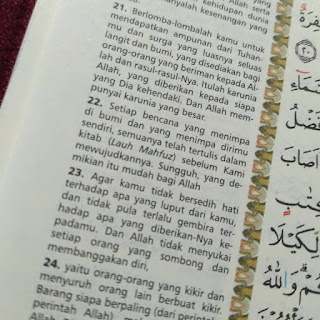 kehidupan dunia
anyalah kesenangan yang
21. Berlomba-lombalah kamu untuk
mendapatkan ampunan dari Tuhan-
mu dan surga yang luasnya seluas
langit dan bumi, yang disediakan bagi
orang-orang yang beriman kepada Al-
lah dan rasul-rasul-Nya. Itulah karunia
yang diberikan kepada siapa
yang Dia kehendaki. Dan Allah mem-
punyai karunia yang besar.
22. Setiap bencana yang menimpa
di bumi dan yang menimpa dirimu
sendiri, semuanya telah tertulis dalam
kitab (Lauh Mahfuz) sebelum Kami
mewujudkannya. Sungguh, yang de-
mikian itu mudah bagi Allah
23. Agar kamu tidak bersedih hati
terhadap apa yang luput dari kamu,
dan tidak pula terlalu gembira ter-
hadap apa yang diberikan-Nya ke-
padamu. Dan Allah tidak menyukai
setiap orang yang sombong dan
membanggakan diri,
24. yaitu orang-orang yang kikir dan
menyuruh orang lain berbuat kikir.
Barang siapa berpaling (dari perin-
perintah Allah)
وَاللَّهُ